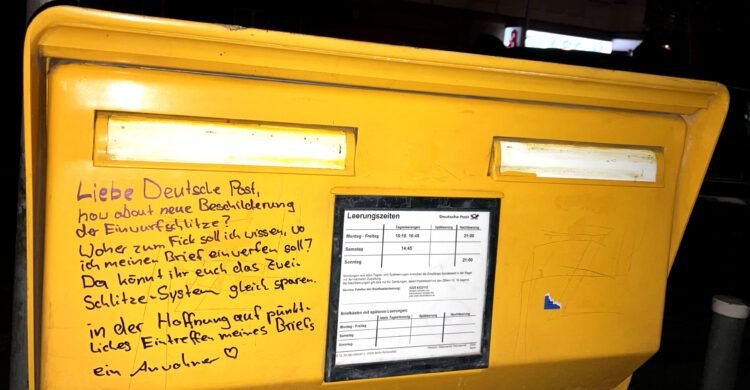 Liebe Deutsche Post,
how about neue Beschilderung
der Einwurfschlitze?
Woher zum Fick soll ich wissen, wo
ich meinen Brief einwerfen soll?
Da könnt ihr euch das Zwei-
Schlitze-System gleich sparen.
in der Hoffnung auf pünkt-
liches Eintreffen meines Briefs
ein Anwohner ♡
Leerungszeiten Deutsche Post
Tagesleerung Spätleerung Nachtleerung
Montag - Freitag 21:00
Samstag 14:45
Sonntag 21:00
Briefkästen mit späteren Leerungen:
letzte Tagesleerung Spätleerung Nachtleerung
Montag - Freitag
Samstag
Sonntag